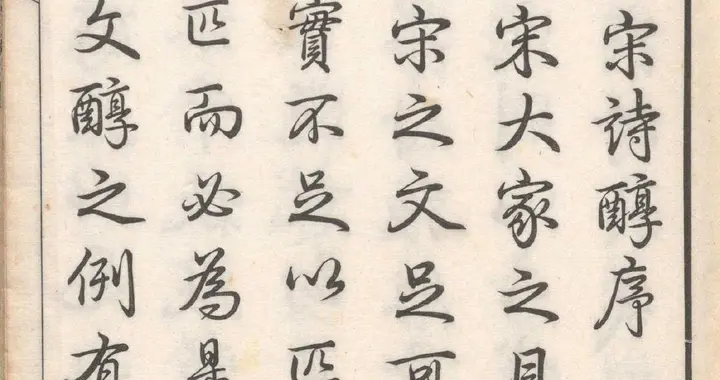 宋詩醇序
宋大家之
宋之文足可
實不足以匹
匹而必為
文醇之例有